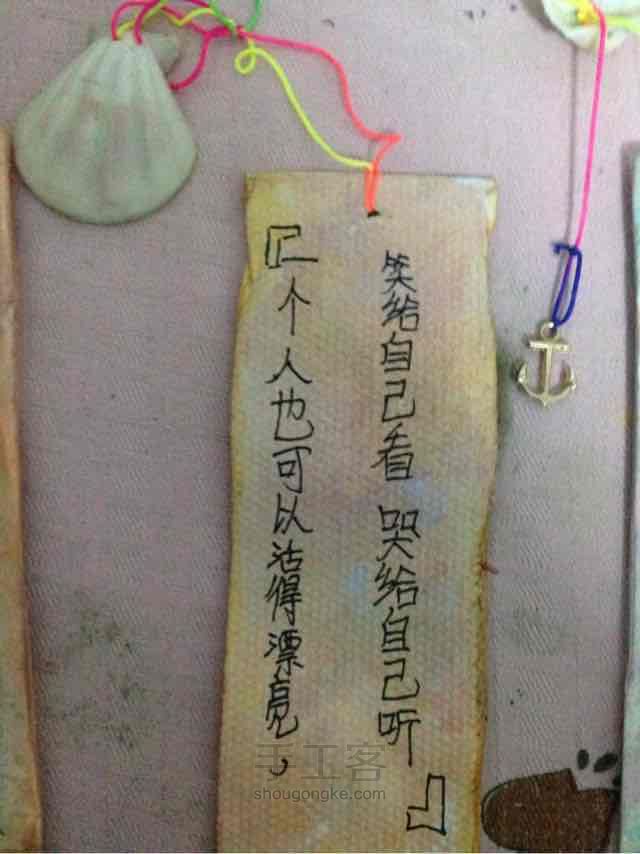 『一个人也可以活得漂亮，
笑给自己看 哭给自己听』
手工客
shougongke.com